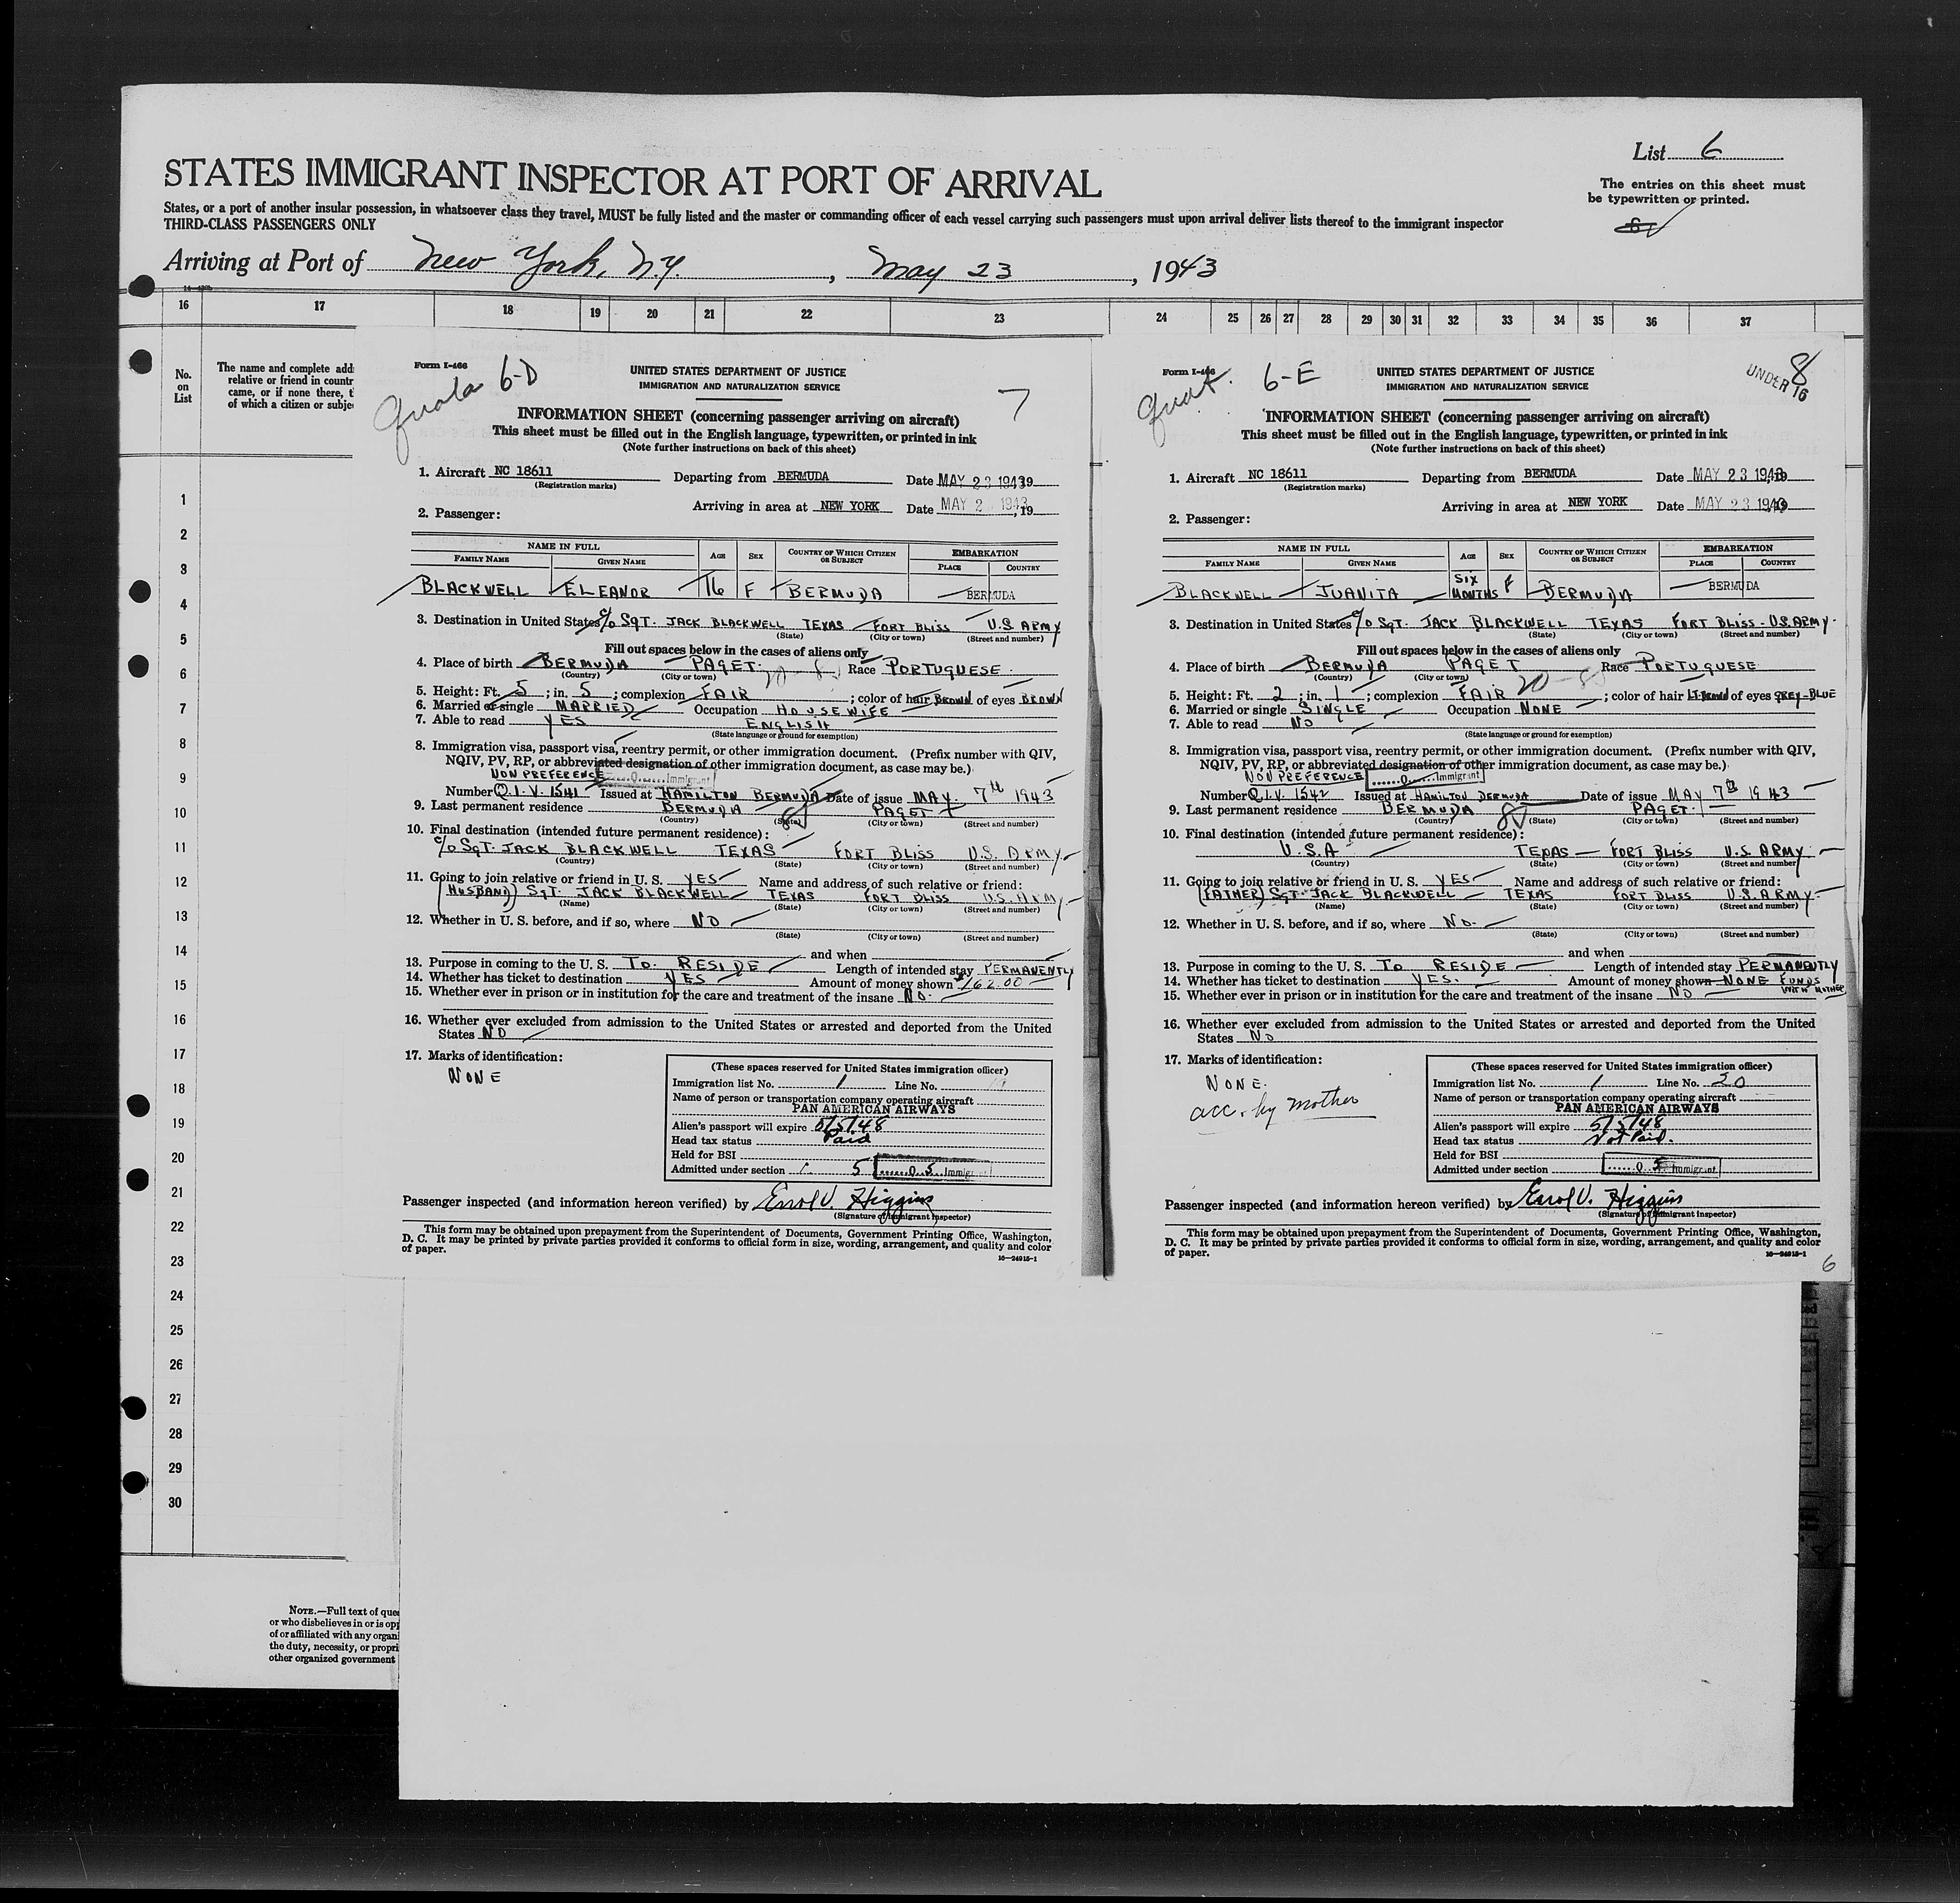 List 6
STATES IMMIGRANT INSPECTOR AT PORT OF ARRIVAL
The entries on this sheet must
be typewritten or printed.
States, or a port of another insular possession, in whatsoever class they travel, MUST be fully listed and the master or commanding officer of each vessel carrying such passengers must upon arrival deliver lists thereof to the immigrant inspector
THIRD-CLASS PASSENGERS ONLY
Arriving at Port of New York, N.Y., May 23, 1943
16 17 18 19 20 21 22 23 24 25 26 27 28 29 30 31 32 33 34 35 36 37
No.
on
List
The name and complete add
relative or friend in countr
came, or if none there, t
of which a citizen or subje
1
2
3
4
5
6
7
8
9
10
11
12
13
14
15
16
17
18
19
20
21
22
23
24
25
26
27
28
29
30
NOTE.—Full text of que
or who disbelieves in or is opp
of or affiliated with any organi
the duty, necessity, or propri
other organized government
Form I-466
6-D
7
UNITED STATES DEPARTMENT OF JUSTICE
IMMIGRATION AND NATURALIZATION SERVICE
INFORMATION SHEET (concerning passenger arriving on aircraft)
This sheet must be filled out in the English language, typewritten, or printed in ink
(Note further instructions on back of this sheet)
1. Aircraft NC 18611 Departing from BERMUDA Date MAY 23 1943, 19
(Registration marks)
Arriving in area at NEW YORK Date MAY 2 1943, 19
2. Passenger:
NAME IN FULL AGE SEX COUNTRY OF WHICH CITIZEN OR SUBJECT EMBARKATION
FAMILY NAME GIVEN NAME PLACE COUNTRY
BLACKWELL ELEANOR 16 F BERMUDA BERMUDA
3. Destination in United States c/o SGT. JACK BLACKWELL TEXAS FORT BLISS U.S ARMY
(State) (City or town) (Street and number)
Fill out spaces below in the cases of aliens only
4. Place of birth BERMUDA PAGET. Race PORTUGUESE.
(Country) (City or town)
5. Height: Ft. 5; in. 5; complexion FAIR; color of hair BROWN of eyes BROWN
6. Married or single MARRIED Occupation HOUSEWIFE
7. Able to read YES ENGLISH
(State language or ground for exemption)
8. Immigration visa, passport visa, reentry permit, or other immigration document. (Prefix number with QIV,
NQIV, PV, RP, or abbreviated designation of other immigration document, as case may be.)
NON PREFERENCE Immigrant
Number Q.I.V. 1541 Issued at HAMILTON BERMUDA Date of issue MAY. 7th 1943
9. Last permanent residence BERMUDA PAGET
(Country) (State) (City or town) (Street and number)
10. Final destination (intended future permanent residence):
c/o SGT. JACK BLACKWELL TEXAS FORT BLISS U.S. ARMY
(Country) (State) (City or town) (Street and number)
11. Going to join relative or friend in U. S. YES Name and address of such relative or friend:
(HUSBAND) SGT. JACK BLACKWELL TEXAS FORT BLISS U.S. ARMY
(Name) (State) (City or town) (Street and number)
12. Whether in U. S. before, and if so, where NO
(State) (City or town) (Street and number)
and when
13. Purpose in coming to the U. S. TO. RESIDE Length of intended stay PERMANENTLY
14. Whether has ticket to destination YES Amount of money shown $162.00
15. Whether ever in prison or in institution for the care and treatment of the insane NO.
16. Whether ever excluded from admission to the United States or arrested and deported from the United
States NO
17. Marks of identification:
NONE
(These spaces reserved for United States immigration officer)
Immigration list No. 1 Line No.
Name of person or transportation company operating aircraft
PAN AMERICAN AIRWAYS
Alien's passport will expire 5/5/48
Head tax status Paid
Held for BSI
Admitted under section 5 0 5 Immigrant
Passenger inspected (and information hereon verified) by Errol V. Higgins
(Signature of Immigrant Inspector)
This form may be obtained upon prepayment from the Superintendent of Documents, Government Printing Office, Washington,
D. C. It may be printed by private parties provided it conforms to official form in size, wording, arrangement, and quality and color
of paper.
16—24915-1
Form I-466
6-E
UNDER 16
8
UNITED STATES DEPARTMENT OF JUSTICE
IMMIGRATION AND NATURALIZATION SERVICE
INFORMATION SHEET (concerning passenger arriving on aircraft)
This sheet must be filled out in the English language, typewritten, or printed in ink
(Note further instructions on back of this sheet)
1. Aircraft NC 18611 Departing from BERMUDA Date MAY 23 1943, 19
(Registration marks)
Arriving in area at NEW YORK Date MAY 23 1943, 19
2. Passenger:
NAME IN FULL AGE SEX COUNTRY OF WHICH CITIZEN OR SUBJECT EMBARKATION
FAMILY NAME GIVEN NAME PLACE COUNTRY
BLACKWELL JUANITA SIX MONTHS F BERMUDA BERMUDA
3. Destination in United States c/o SGT. JACK BLACKWELL TEXAS FORT BLISS - U.S. ARMY.
(State) (City or town) (Street and number)
Fill out spaces below in the cases of aliens only
4. Place of birth BERMUDA PAGET Race PORTUGUESE
(Country) (City or town)
5. Height: Ft. 2; in. 1; complexion FAIR; color of hair LT. BROWN of eyes GREY-BLUE
6. Married or single SINGLE Occupation NONE
7. Able to read NO
(State language or ground for exemption)
8. Immigration visa, passport visa, reentry permit, or other immigration document. (Prefix number with QIV,
NQIV, PV, RP, or abbreviated designation of other immigration document, as case may be.)
NON PREFERENCE 0 Immigrant
Number Q.I.V. 1542 Issued at HAMILTON BERMUDA Date of issue MAY 7th 1943
9. Last permanent residence BERMUDA PAGET.
(Country) (State) (City or town) (Street and number)
10. Final destination (intended future permanent residence):
U.S.A TEXAS FORT BLISS U.S ARMY.
(Country) (State) (City or town) (Street and number)
11. Going to join relative or friend in U. S. YES Name and address of such relative or friend:
(FATHER) SGT. JACK BLACKWELL TEXAS FORT BLISS U.S. ARMY.
(Name) (State) (City or town) (Street and number)
12. Whether in U. S. before, and if so, where NO.
(State) (City or town) (Street and number)
and when
13. Purpose in coming to the U. S. TO RESIDE Length of intended stay PERMANENTLY
14. Whether has ticket to destination YES. Amount of money shown NONE FUNDS WITH MOTHER
15. Whether ever in prison or in institution for the care and treatment of the insane NO
16. Whether ever excluded from admission to the United States or arrested and deported from the United
States NO
17. Marks of identification:
NONE.
acc. by mother
(These spaces reserved for United States immigration officer)
Immigration list No. 1 Line No. 20
Name of person or transportation company operating aircraft
PAN AMERICAN AIRWAYS
Alien's passport will expire 5/5/48
Head tax status Not Paid.
Held for BSI
Admitted under section 0 5 Immigrant
Passenger inspected (and information hereon verified) by Errol V. Higgins
(Signature of Immigrant Inspector)
This form may be obtained upon prepayment from the Superintendent of Documents, Government Printing Office, Washington,
D. C. It may be printed by private parties provided it conforms to official form in size, wording, arrangement, and quality and color
of paper.
16—24915-1
6